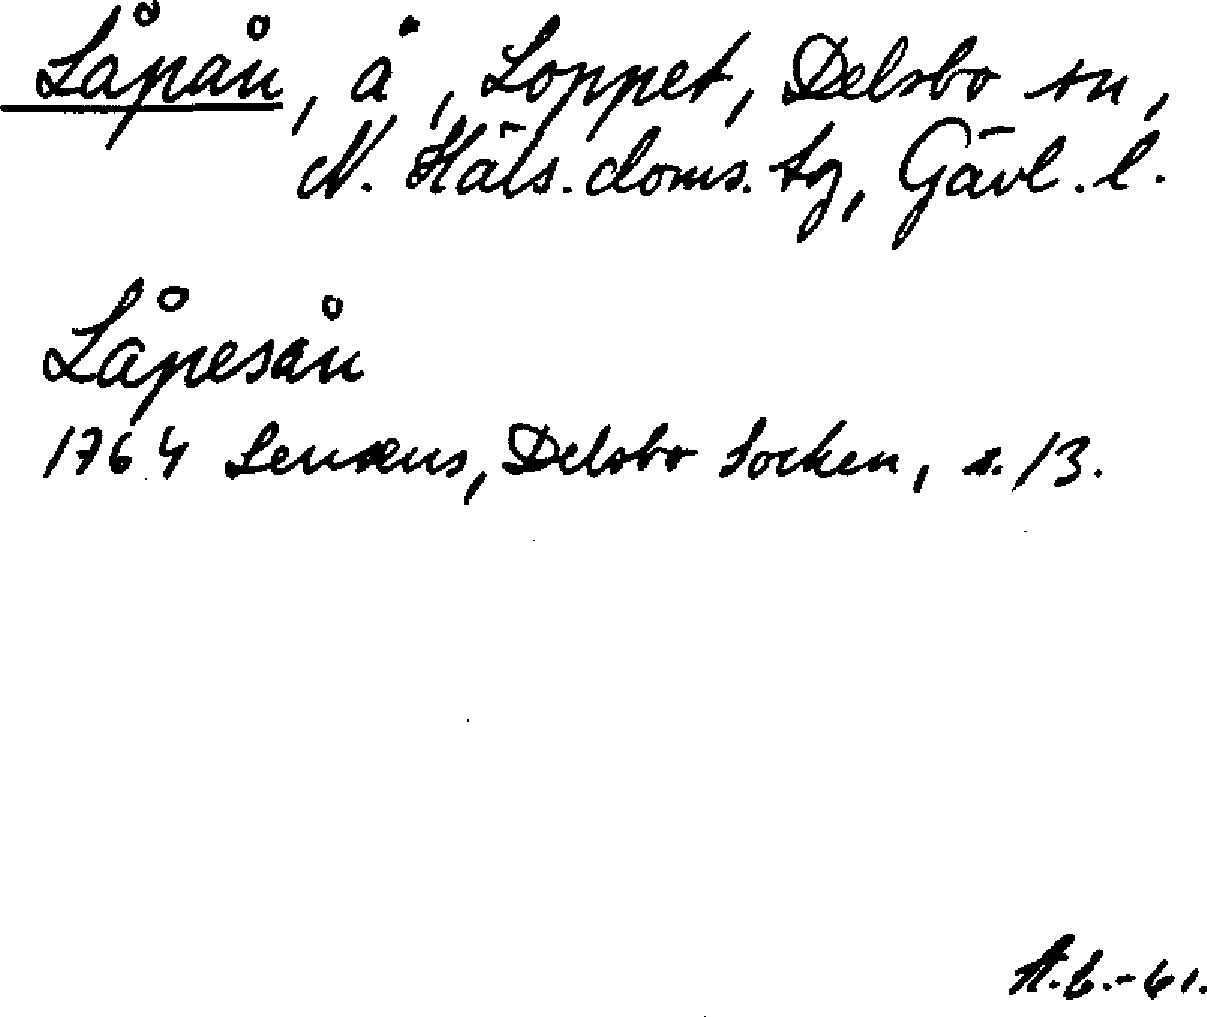 Låpån, å, Loppet, Delsbo sn,
N. Häls. doms. tg, Gävl. l.
Låpesån
1764 Lenæus, Delsbo Socken, s. 13.
A.b.-61.